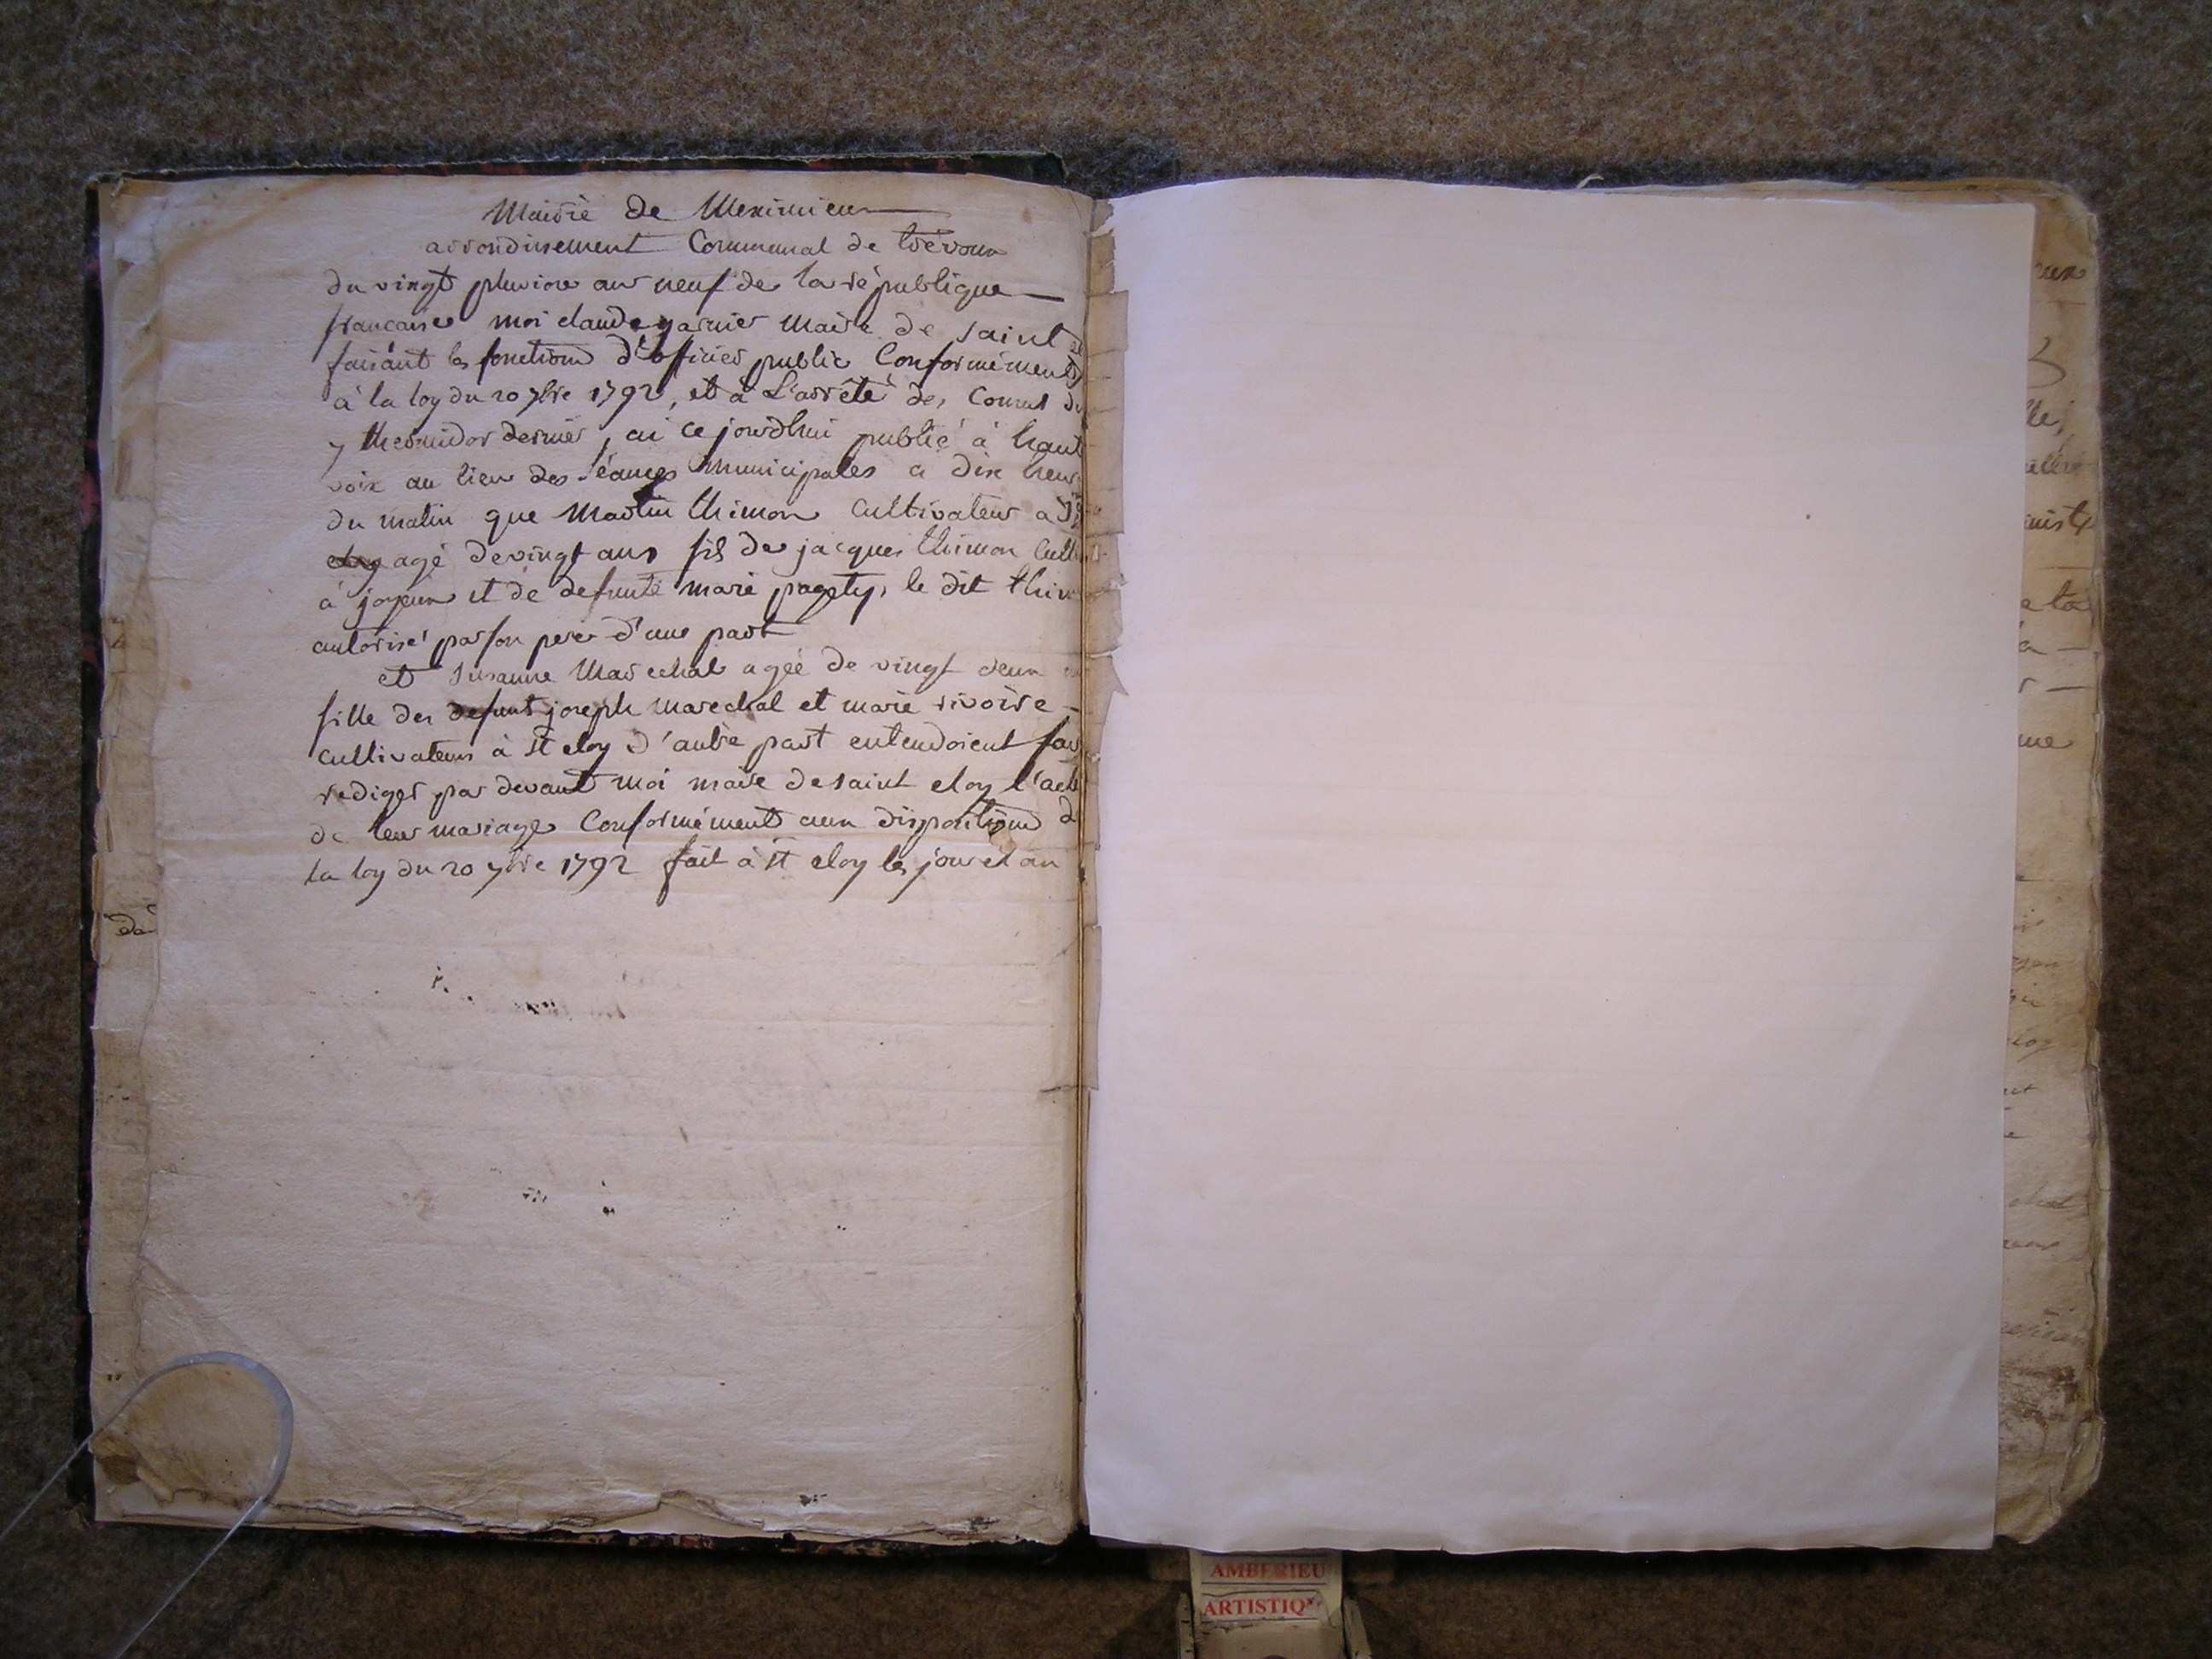 Mairie de Meximieux
arrondissement Communal de trévoux
du vingt pluviose an neuf de la république
francaise moi claude garnier Maire de saint
faisant les fonctions d'officier public Conformément
à la loy du 20 7bre 1792, et à L'arrêté des Consuls du
7 thermidor dernier, ai ce jourdhui publié à haute
voix au lieu des Séances Municipales a dix heures
du matin que Martin thimon Cultivateur a
agé de vingt ans fils de jacques thimon Cult
à joyeux et de defunte marie pagety, le dit thim
autorisé par son pere d'une part
et Susanne Marechal agée de vingt deux
fille des defunt joseph marechal et marie rivoire
Cultivateurs à St eloy d'autre part entendoient fair
rediger par devant moi maire de saint eloy l'acte
de leur mariage Conformément aux dispositions d
la loy du 20 7bre 1792 fait à St eloy les jour et an
AMBERIEU
ARTISTIQ